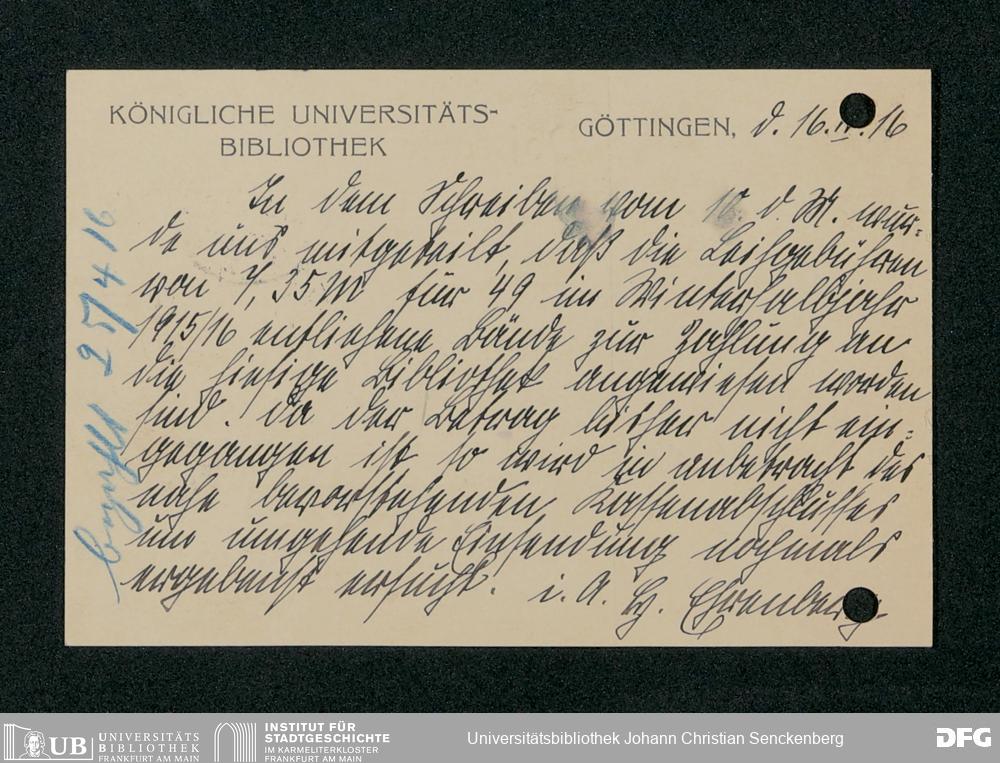 KÖNIGLICHE UNIVERSITÄTS-
BIBLIOTHEK
GÖTTINGEN, d. 16. IV. 16
In dem Schreiben vom 10. d. M. wur-
de uns mitgeteilt, daß die Leihgebühren
von 7,35 M für 49 im Winterhalbjahr
1915/16 entliehene Bände zur Zahlung an
die hiesige Bibliothek angewiesen worden
sind. Da der Betrag bisher nicht ein-
gegangen ist so wird in anbetracht des
nahe bevorstehenden Kassenabschlusses
um umgehende Einsendung nochmals
ergebenst ersucht. i. A. Ehrenberg.
bezahlt 25/4 16
UB UNIVERSITÄTS
BIBLIOTHEK
FRANKFURT AM MAIN
INSTITUT FÜR
STADTGESCHICHTE
IM KARMELITERKLOSTER
FRANKFURT AM MAIN
Universitätsbibliothek Johann Christian Senckenberg
DFG